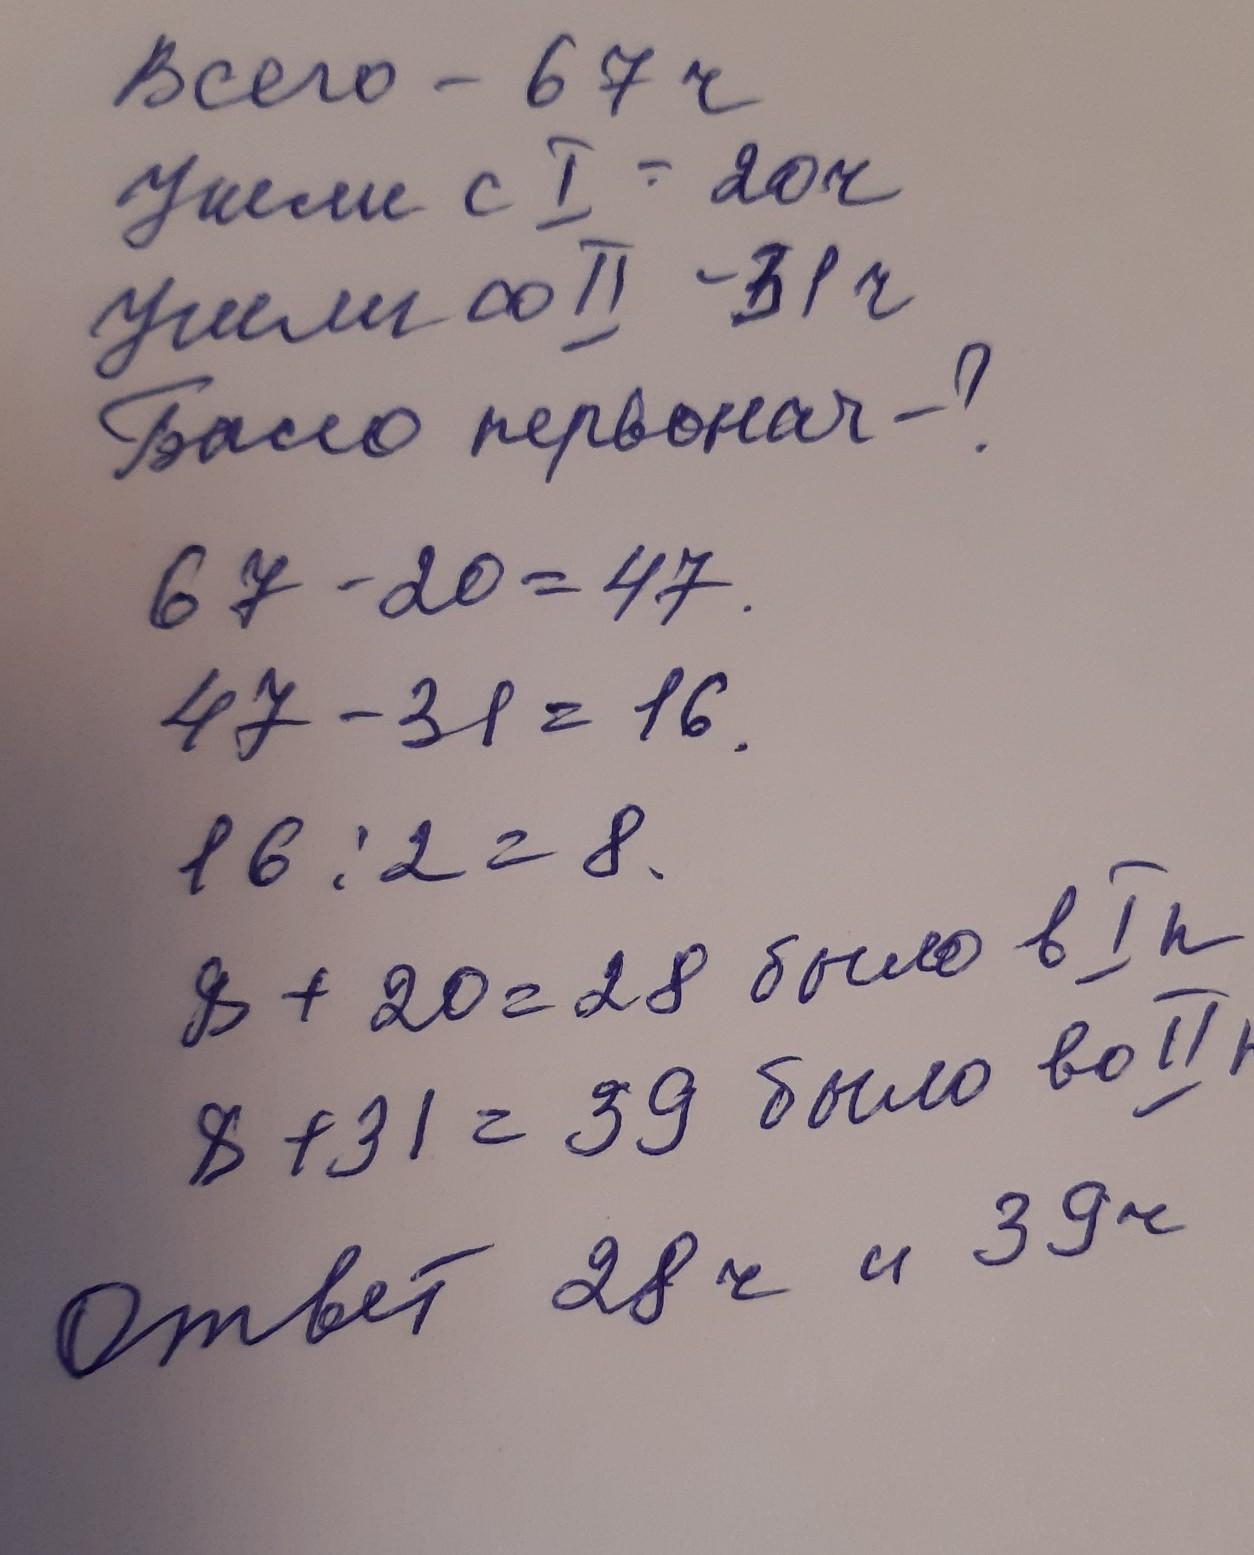 Всего - 67 ч
Ушли с I - 20ч
Ушли со II - 31 ч
Было первонач - ?
67 - 20 = 47.
47 - 31 = 16.
16 : 2 = 8.
8 + 20 = 28 было в I п
8 + 31 = 39 было во II п
Ответ 28 ч и 39ч